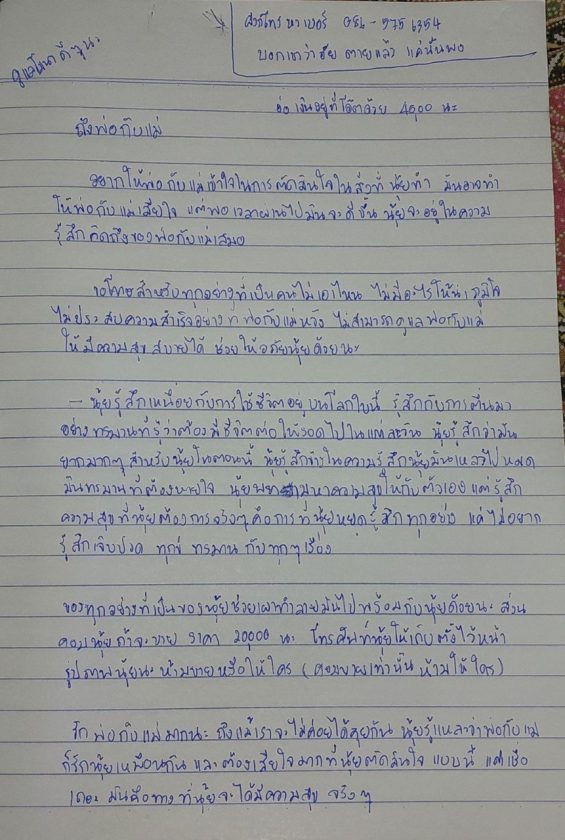 ฝากโทร หา เบอร์ 086 - 9756354
บอกเขาว่านุ้ย ตายแล้ว แค่นั้นพอ
ดูแล ดีๆนะ
เงินอยู่ที่โต๊ะด้วย 4000 นะ
ถึงพ่อกับแม่
อยากให้พ่อกับแม่เข้าใจในการตัดสินใจในสิ่งที่นุ้ยทำ มันอาจทำ
ให้พ่อกับแม่เสียใจ แต่พอเวลาผ่านไปมันจะดีขึ้น นุ้ยจะอยู่ในความ
รู้สึกคิดถึงของพ่อกับแม่เสมอ
ขอโทษสำหรับทุกอย่างที่เป็นคนไม่เอาไหน ไม่มีอะไรให้น่าภูมิใจ
ไม่ประสบความสำเร็จอย่างที่พ่อกับแม่หวัง ไม่สามารถดูแลพ่อกับแม่
ให้มีความสุขสบายได้ ช่วยให้อภัยนุ้ยด้วยนะ
— นุ้ยรู้สึกเหนื่อยกับการใช้ชีวิตอยู่บนโลกใบนี้ รู้สึกกับการตื่นมา
อย่างทรมานที่รู้ว่าต้องมีชีวิตต่อให้รอดไปในแต่ละวัน นุ้ยรู้สึกว่ามัน
ยากมากๆ สำหรับนุ้ยในตอนนี้ นุ้ยรู้สึกข้างในความรู้สึกนุ้ยมันเหลวไปหมด
มันทรมานที่ต้องหายใจ นุ้ยพยายามหาความสุขให้กับตัวเองแต่รู้สึก
ความสุขที่นุ้ยต้องการจริงๆ คือการที่นุ้ยหยุดรู้สึกทุกอย่าง แค่ไม่อยาก
รู้สึกเจ็บปวด ทุกข์ ทรมาน กับทุกๆเรื่อง
ของทุกอย่างที่เป็นของนุ้ยช่วยเผาทำลายมันไปพร้อมกับนุ้ยด้วยนะ ส่วน
คอมนุ้ยถ้าจะขาย ราคา 20000 นะ โทรศัพท์นุ้ยให้เก็บตั้งไว้หน้า
รูปภาพนุ้ยนะ ห้ามขายหรือให้ใคร (คอมขายเท่านั้น ห้ามให้ใคร)
รักพ่อกับแม่มากนะ ถึงแม้เราจะไม่ค่อยได้คุยกัน นุ้ยรู้แหละว่าพ่อกับแม่
ก็รักนุ้ยเหมือนกัน และต้องเสียใจมากที่นุ้ยตัดสินใจ แบบนี้ แต่เชื่อ
เถอะ มันคือทางที่นุ้ยจะได้มีความสุข จริงๆ